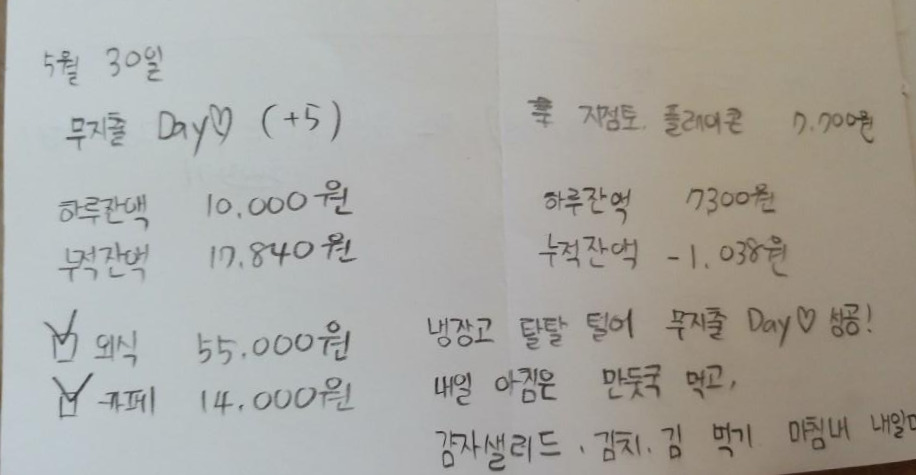 5월 30일
무지출 Day♡ (+5)
하루잔액 10,000원
누적잔액 17.840원
외식 55.000원
카페 14.000원
지점토, 플레이콘 7.700원
하루잔액 7300원
누적잔액 -1.038원
냉장고 탈탈 털어 무지출 Day♡ 성공!
내일 아침은 만둣국 먹고,
감자샐러드, 김치, 김 먹기 마침내